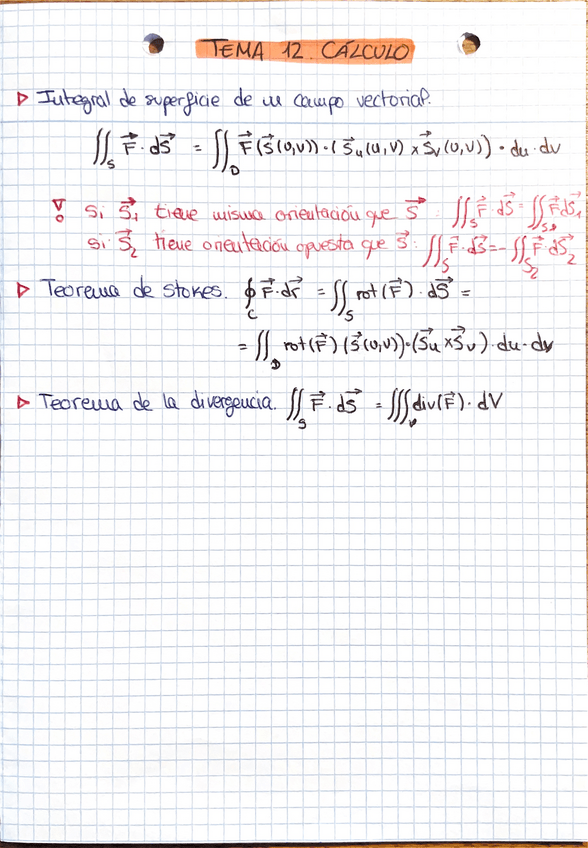 TEMA 12. CÁLCULO
▷ Integral de superficie de un campo vectorial.
∬_S F⃗ · dS⃗ = ∬_D F⃗(S⃗(u,v)) · (S⃗u(u,v) × S⃗v(u,v)) · du · dv
Si S⃗₁ tiene misma orientación que S⃗ : ∬_S F⃗ · dS⃗ = ∬_S₁ F⃗ dS⃗₁
si S⃗₂ tiene orientación opuesta que S⃗ : ∬_S F⃗ · dS⃗ = - ∬_S₂ F⃗ · dS⃗₂
▷ Teorema de Stokes. ∮_C F⃗ · dr⃗ = ∬_S rot(F⃗) · dS⃗ =
= ∬_D rot(F⃗)(S⃗(u,v)) · (S⃗u × S⃗v) · du · dv
▷ Teorema de la divergencia. ∬_S F⃗ · dS⃗ = ∭_V div(F⃗) · dV